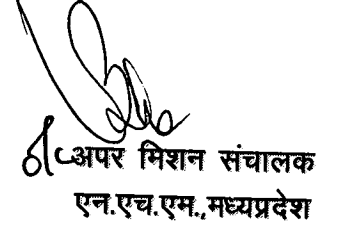 अपर मिशन संचालक
एन.एच.एम.,मध्यप्रदेश